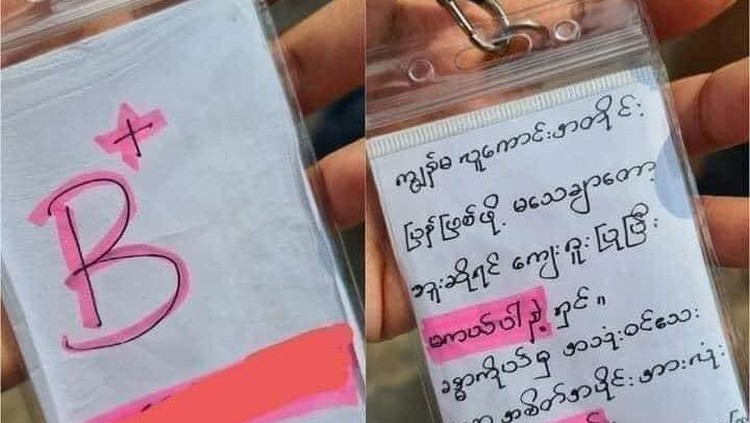 B+
ကျွန်မ လူကောင်းအတိုင်း
ပြန်ဖြစ်ဖို့ မသေချာတော့
ဘူးဆိုရင် ကျေးဇူးပြုပြီး
မကယ်ပါနဲ့ ရှင်။
ခန္ဓာကိုယ်မှ အသုံးဝင်သေး
အစိတ်အပိုင်း အားလုံး